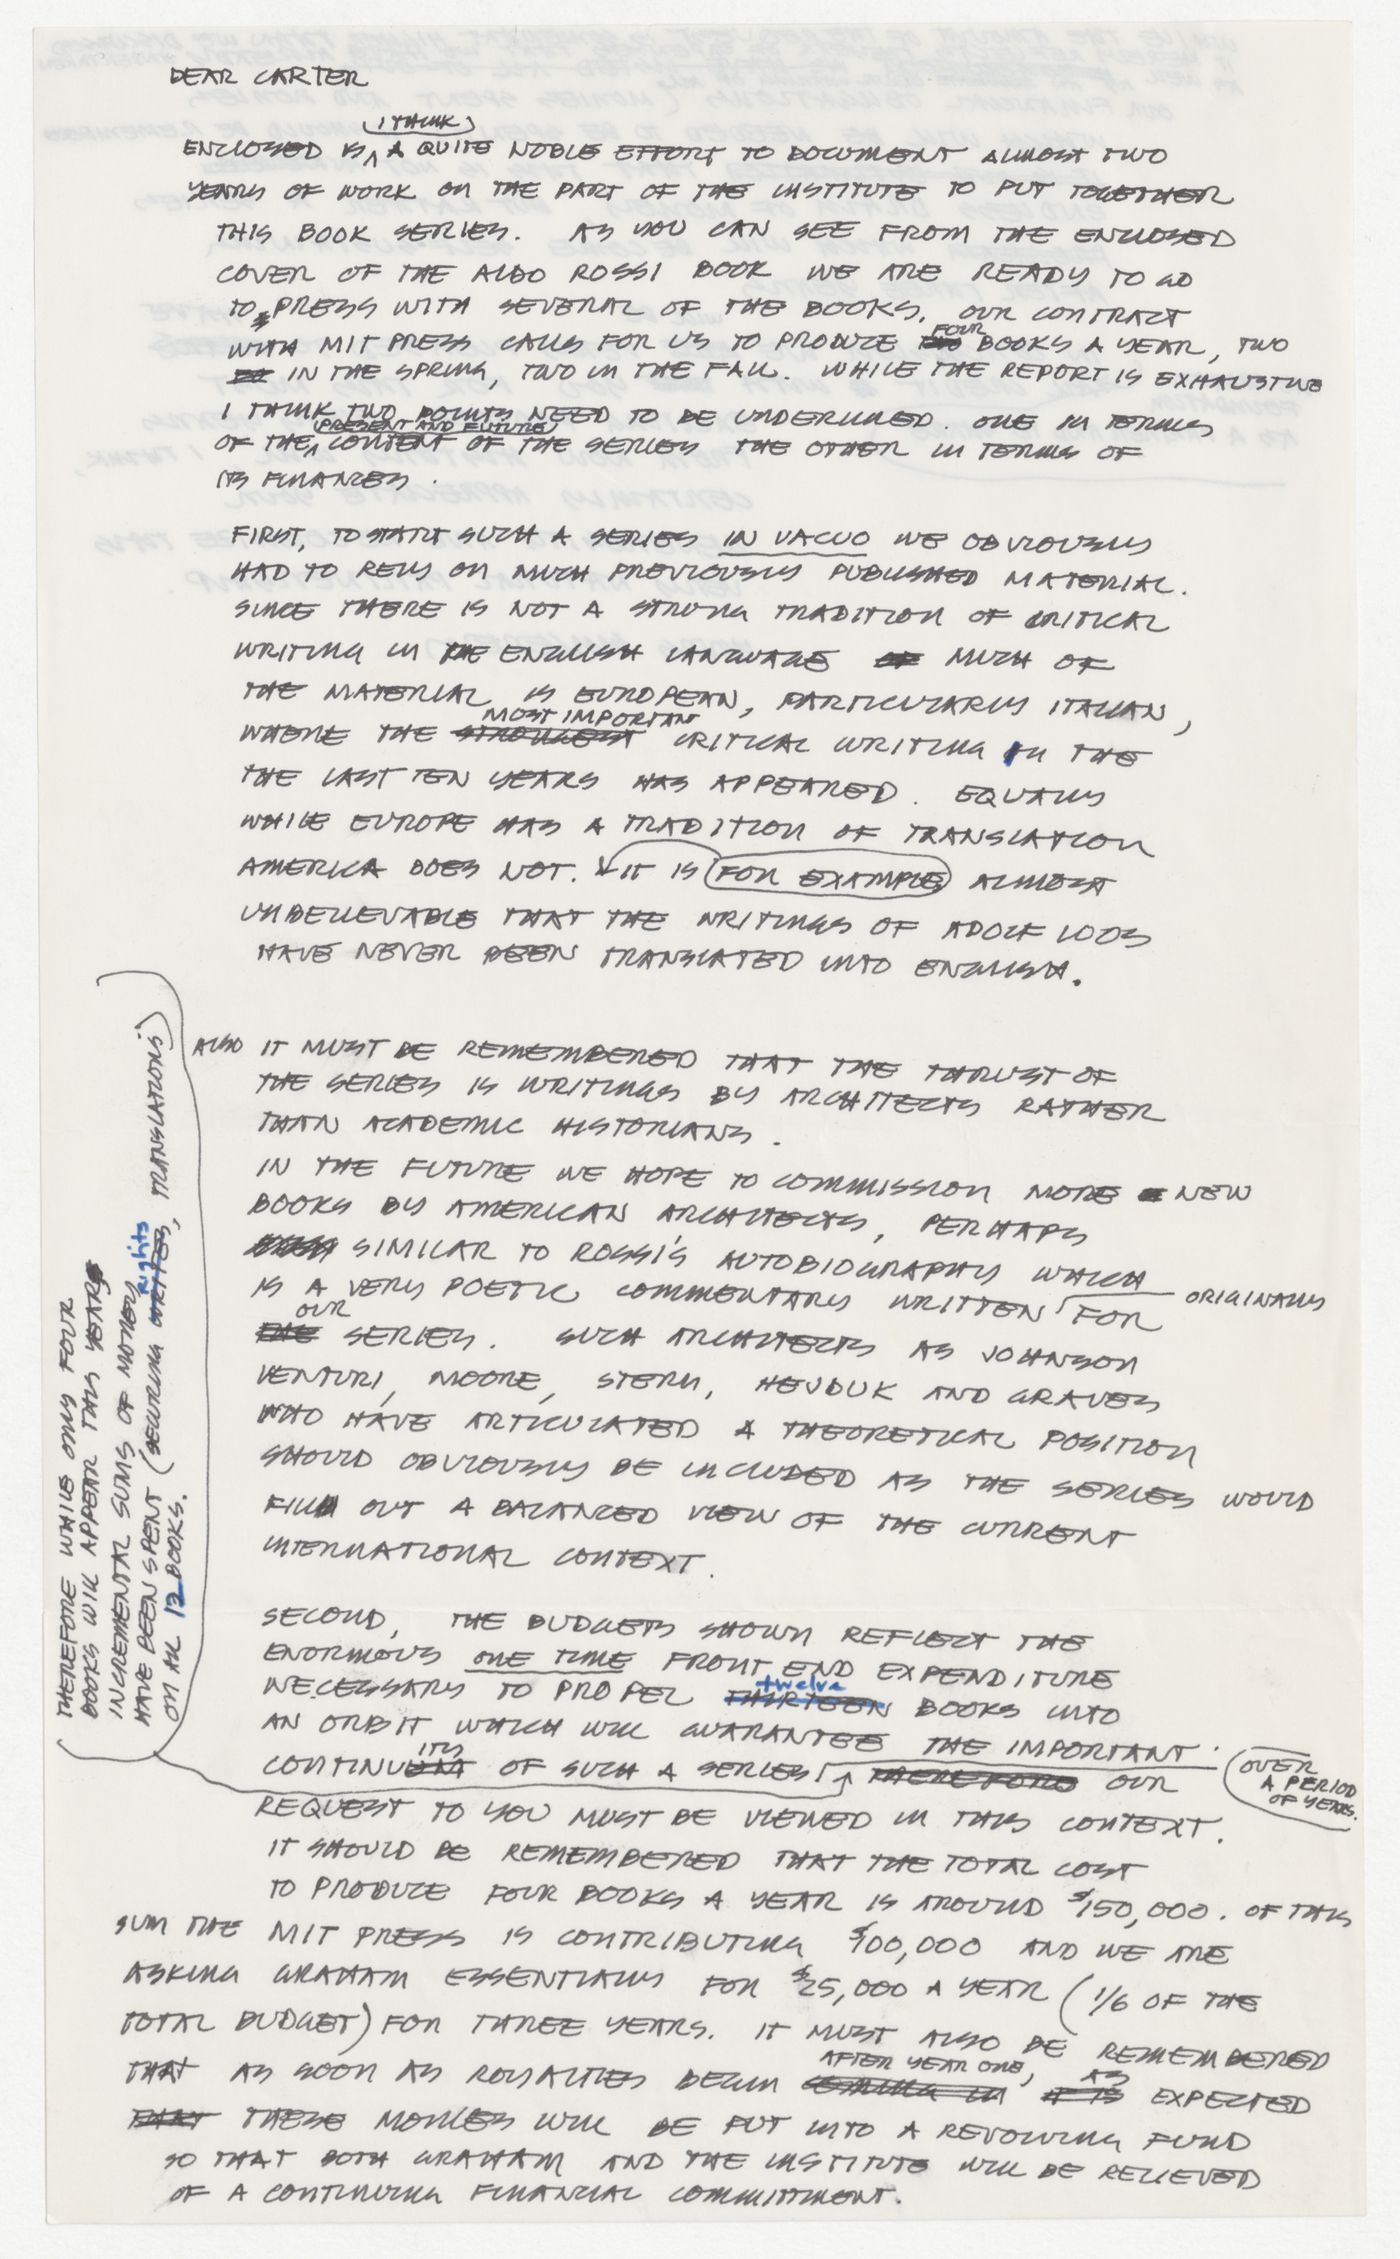 DEAR CARTER
(I THINK)
ENCLOSED IS ^ A QUITE NOBLE EFFORT TO DOCUMENT ALMOST TWO
YEARS OF WORK ON THE PART OF THE INSTITUTE TO PUT TOGETHER
THIS BOOK SERIES. AS YOU CAN SEE FROM THE ENCLOSED
COVER OF THE ALDO ROSSI BOOK WE ARE READY TO GO
TO PRESS WITH SEVERAL OF THE BOOKS. OUR CONTRACT
FOUR
WITH MIT PRESS CALLS FOR US TO PRODUCE BOOKS A YEAR, TWO
IN THE SPRING, TWO IN THE FALL. WHILE THE REPORT IS EXHAUSTIVE
I THINK TWO POINTS NEED TO BE UNDERLINED. ONE IN TERMS
(PRESENT AND FUTURE)
OF THE ^ CONTENT OF THE SERIES THE OTHER IN TERMS OF
ITS FINANCES.
FIRST, TO START SUCH A SERIES IN VACUO WE OBVIOUSLY
HAD TO RELY ON MUCH PREVIOUSLY PUBLISHED MATERIAL.
SINCE THERE IS NOT A STRONG TRADITION OF CRITICAL
WRITING IN THE ENGLISH LANGUAGE OF MUCH OF
THE MATERIAL IS EUROPEAN, PARTICULARLY ITALIAN,
MOST IMPORTANT
WHERE THE STRONGEST CRITICAL WRITING IN THE
THE LAST TEN YEARS HAS APPEARED. EQUALLY
WHILE EUROPE HAS A TRADITION OF TRANSLATION
AMERICA DOES NOT. IT IS (FOR EXAMPLE) ALMOST
UNBELIEVABLE THAT THE WRITINGS OF ADOLF LOOS
HAVE NEVER BEEN TRANSLATED INTO ENGLISH.
ALSO IT MUST BE REMEMBERED THAT THE THRUST OF
THE SERIES IS WRITINGS BY ARCHITECTS RATHER
THAN ACADEMIC HISTORIANS.
IN THE FUTURE WE HOPE TO COMMISSION MORE NEW
BOOKS BY AMERICAN ARCHITECTS, PERHAPS
SIMILAR TO ROSSI'S AUTOBIOGRAPHY WHICH
IS A VERY POETIC COMMENTARY WRITTEN FOR ORIGINALLY
OUR
THE SERIES. SUCH ARCHITECTS AS JOHNSON
VENTURI, MOORE, STERN, HEJDUK AND GRAVES
WHO HAVE ARTICULATED A THEORETICAL POSITION
SHOULD OBVIOUSLY BE INCLUDED AS THE SERIES WOULD
FILL OUT A BALANCED VIEW OF THE CURRENT
INTERNATIONAL CONTEXT.
SECOND, THE BUDGETS SHOWN REFLECT THE
ENORMOUS ONE TIME FRONT END EXPENDITURE
twelve
NECESSARY TO PROPEL THIRTEEN BOOKS INTO
AN ORBIT WHICH WILL GUARANTEE THE IMPORTANT
ITY
CONTINUENT OF SUCH A SERIES THEREFORE OUR
OVER
A PERIOD
OF YEARS.
REQUEST TO YOU MUST BE VIEWED IN THIS CONTEXT.
IT SHOULD BE REMEMBERED THAT THE TOTAL COST
TO PRODUCE FOUR BOOKS A YEAR IS AROUND $150,000. OF THIS
SUM THE MIT PRESS IS CONTRIBUTING $100,000 AND WE ARE
ASKING GRAHAM ESSENTIALLY FOR $25,000 A YEAR (1/6 OF THE
TOTAL BUDGET) FOR THREE YEARS. IT MUST ALSO BE REMEMBERED
AFTER YEAR ONE, AS
THAT AS SOON AS ROYALTIES BEGIN COMING IN IT IS EXPECTED
THAT THESE MONIES WILL BE PUT INTO A REVOLVING FUND
SO THAT BOTH GRAHAM AND THE INSTITUTE WILL BE RELIEVED
OF A CONTINUING FINANCIAL COMMITTMENT.
THEREFORE WHILE ONLY FOUR
BOOKS WILL APPEAR THIS YEAR
INCREMENTAL SUMS OF MONEY
Rights
HAVE BEEN SPENT (SECURING, TRANSLATIONS)
ON ALL 12 BOOKS.